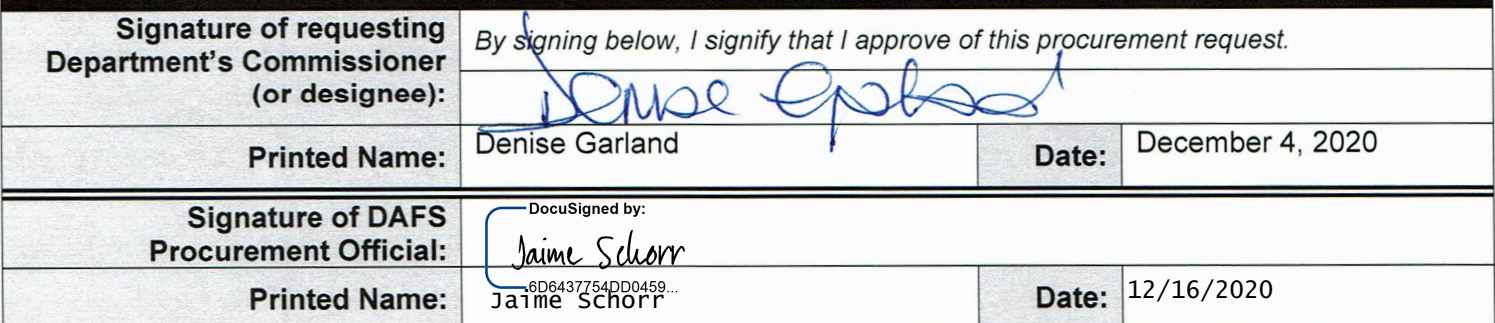 Signature of requesting
Department's Commissioner
(or designee):
By signing below, I signify that I approve of this procurement request.
Denise Garland
Printed Name:
Denise Garland
Date:
December 4, 2020
Signature of DAFS
Procurement Official:
DocuSigned by:
Jaime Schorr
6D6437754DD0459...
Printed Name:
Jaime Schorr
Date:
12/16/2020